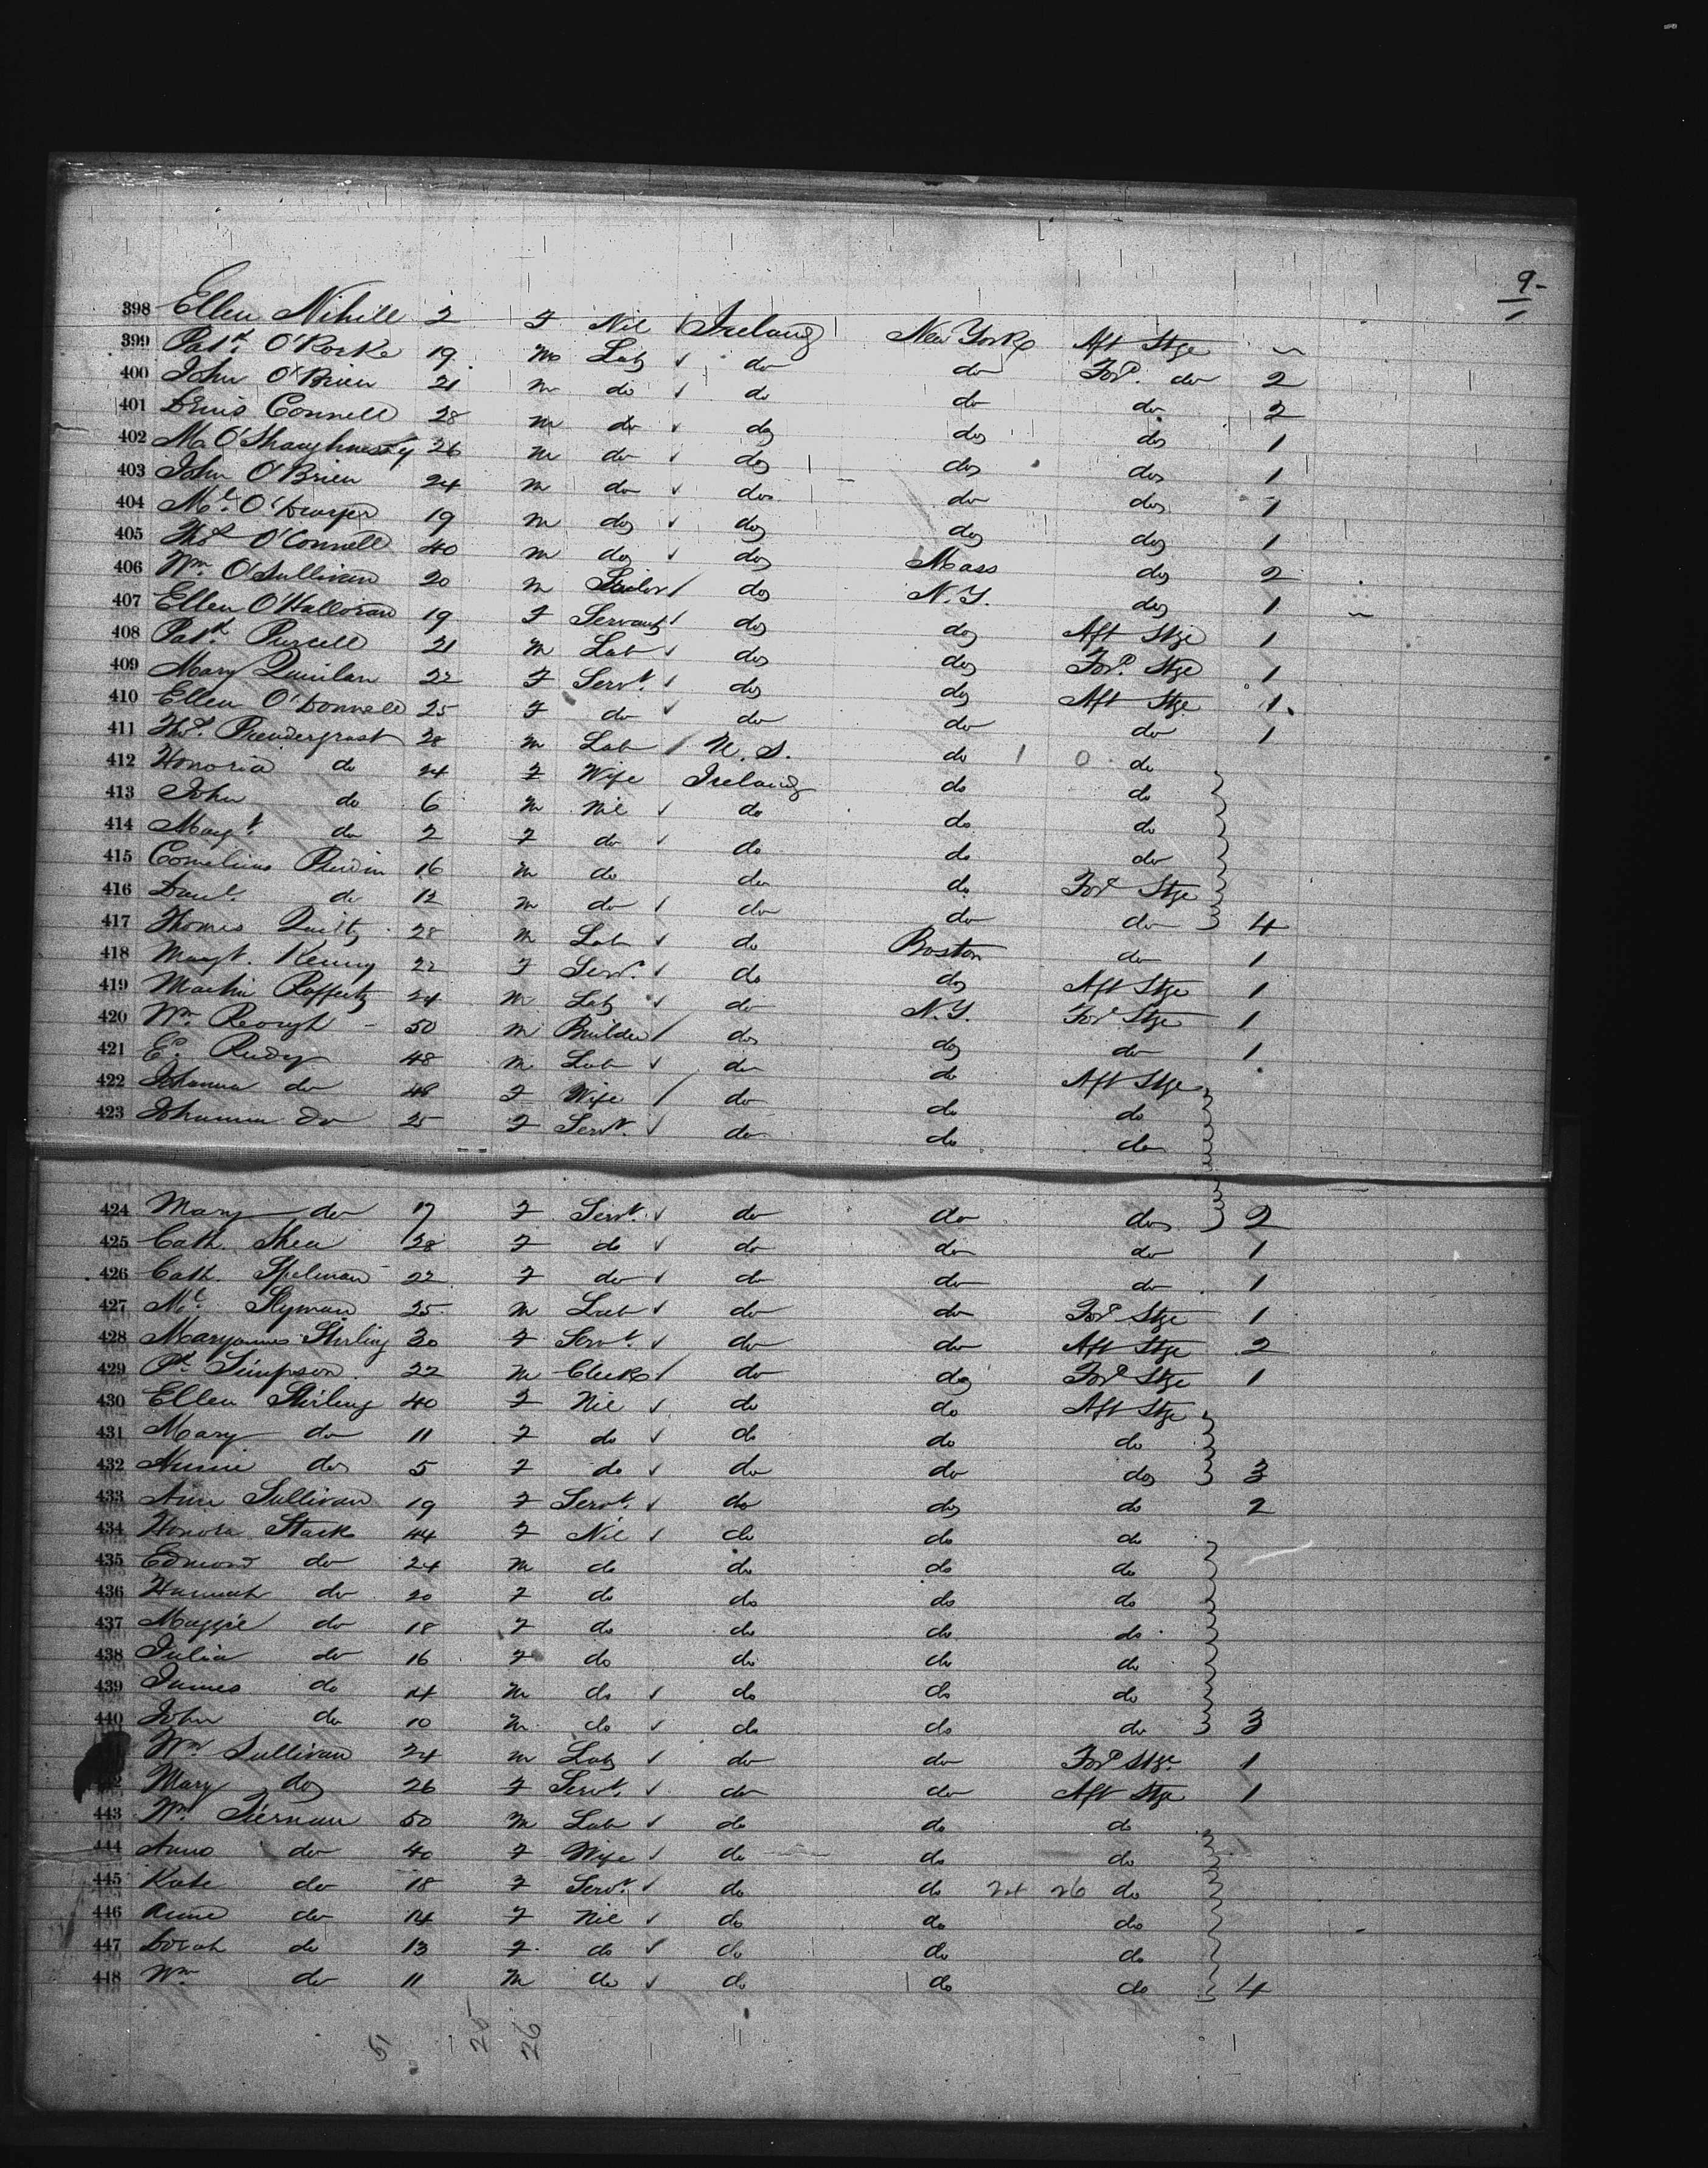 9-
398 Ellen Nihill 2 F Nil Ireland New York Aft Stge
399 Patk O'Rorke 19 M Lab do do Ford do 2
400 John O'Brien 21 M do do do do 2
401 Denis Connell 28 M do do do do 1
402 M. O'Shaughnessy 26 M do do do do 1
403 John O'Brien 24 M do do do do 1
404 Ml O'Dwyer 19 M do do do do 1
405 Thos O'Connell 40 M do do Mass do 2
406 Wm O'Sullivan 20 M do N.Y. do 1
407 Ellen O'Halloran 19 F Servant do do Aft Stge 1
408 Patk Purcell 21 M Lab do do Ford Stge 1
409 Mary Quinlan 22 F Servt. do do Aft Stge 1
410 Ellen O'Donnell 25 F do do do do 1
411 Thos. Prendergrast 28 M Lab U.S. do 1 0 do
412 Honoria do 24 F Wife Ireland do do
413 John do 6 M Nil do do do
414 Margt. do 2 F do do do do
415 Cornelius 16 M do do do Ford Stge
416 Danl. do 12 M do do do do 4
417 Thomas Quilty 28 M Lab do Boston do 1
418 Margt. Kenny 22 F Servt. do do Aft Stge 1
419 Martin Rafferty 24 M Lab do N.Y. Ford Stge 1
420 Wm Reough 50 M Builder do do do 1
421 48 M Lab do do Aft Stge
422 Johanna do 48 F Wife do do do
423 do 25 F Servt. do do do
424 Mary do 17 F Servt. do do do 2
425 Cath. Shea 28 F do do do do 1
426 Cath. Spelman 22 F do do do do 1
427 Ml. Slyman 25 M Lab do do Ford Stge 1
428 Maryanne Stirling 30 F Servt. do do Aft Stge 2
429 Simpson 22 M Clerk do do Ford Stge 1
430 Ellen Stirling 40 F Nil do do Aft Stge
431 Mary do 11 F do do do do
432 Annie do 5 F do do do do 3
433 Ann Sullivan 19 F Servt. do do do 2
434 Honora Stack 44 F Nil do do do
435 Edmond do 24 M do do do do
436 Hannah do 20 F do do do do
437 Maggie do 18 F do do do do
438 Julia do 16 F do do do do
439 James do 14 M do do do do
440 John do 10 M do do do do 3
Wm Sullivan 24 M Lab do do Ford Stge 1
Mary do 26 F Servt. do do Aft Stge 1
443 Wm Tiernan 50 M Lab do do do
444 Anne do 40 F Wife do do do
445 Kate do 18 F Servt. do do 24 26 do
446 Anne do 14 F Nil do do do
447 do 13 F do do do do
448 Wm do 11 M do do do do 4
51 25 26